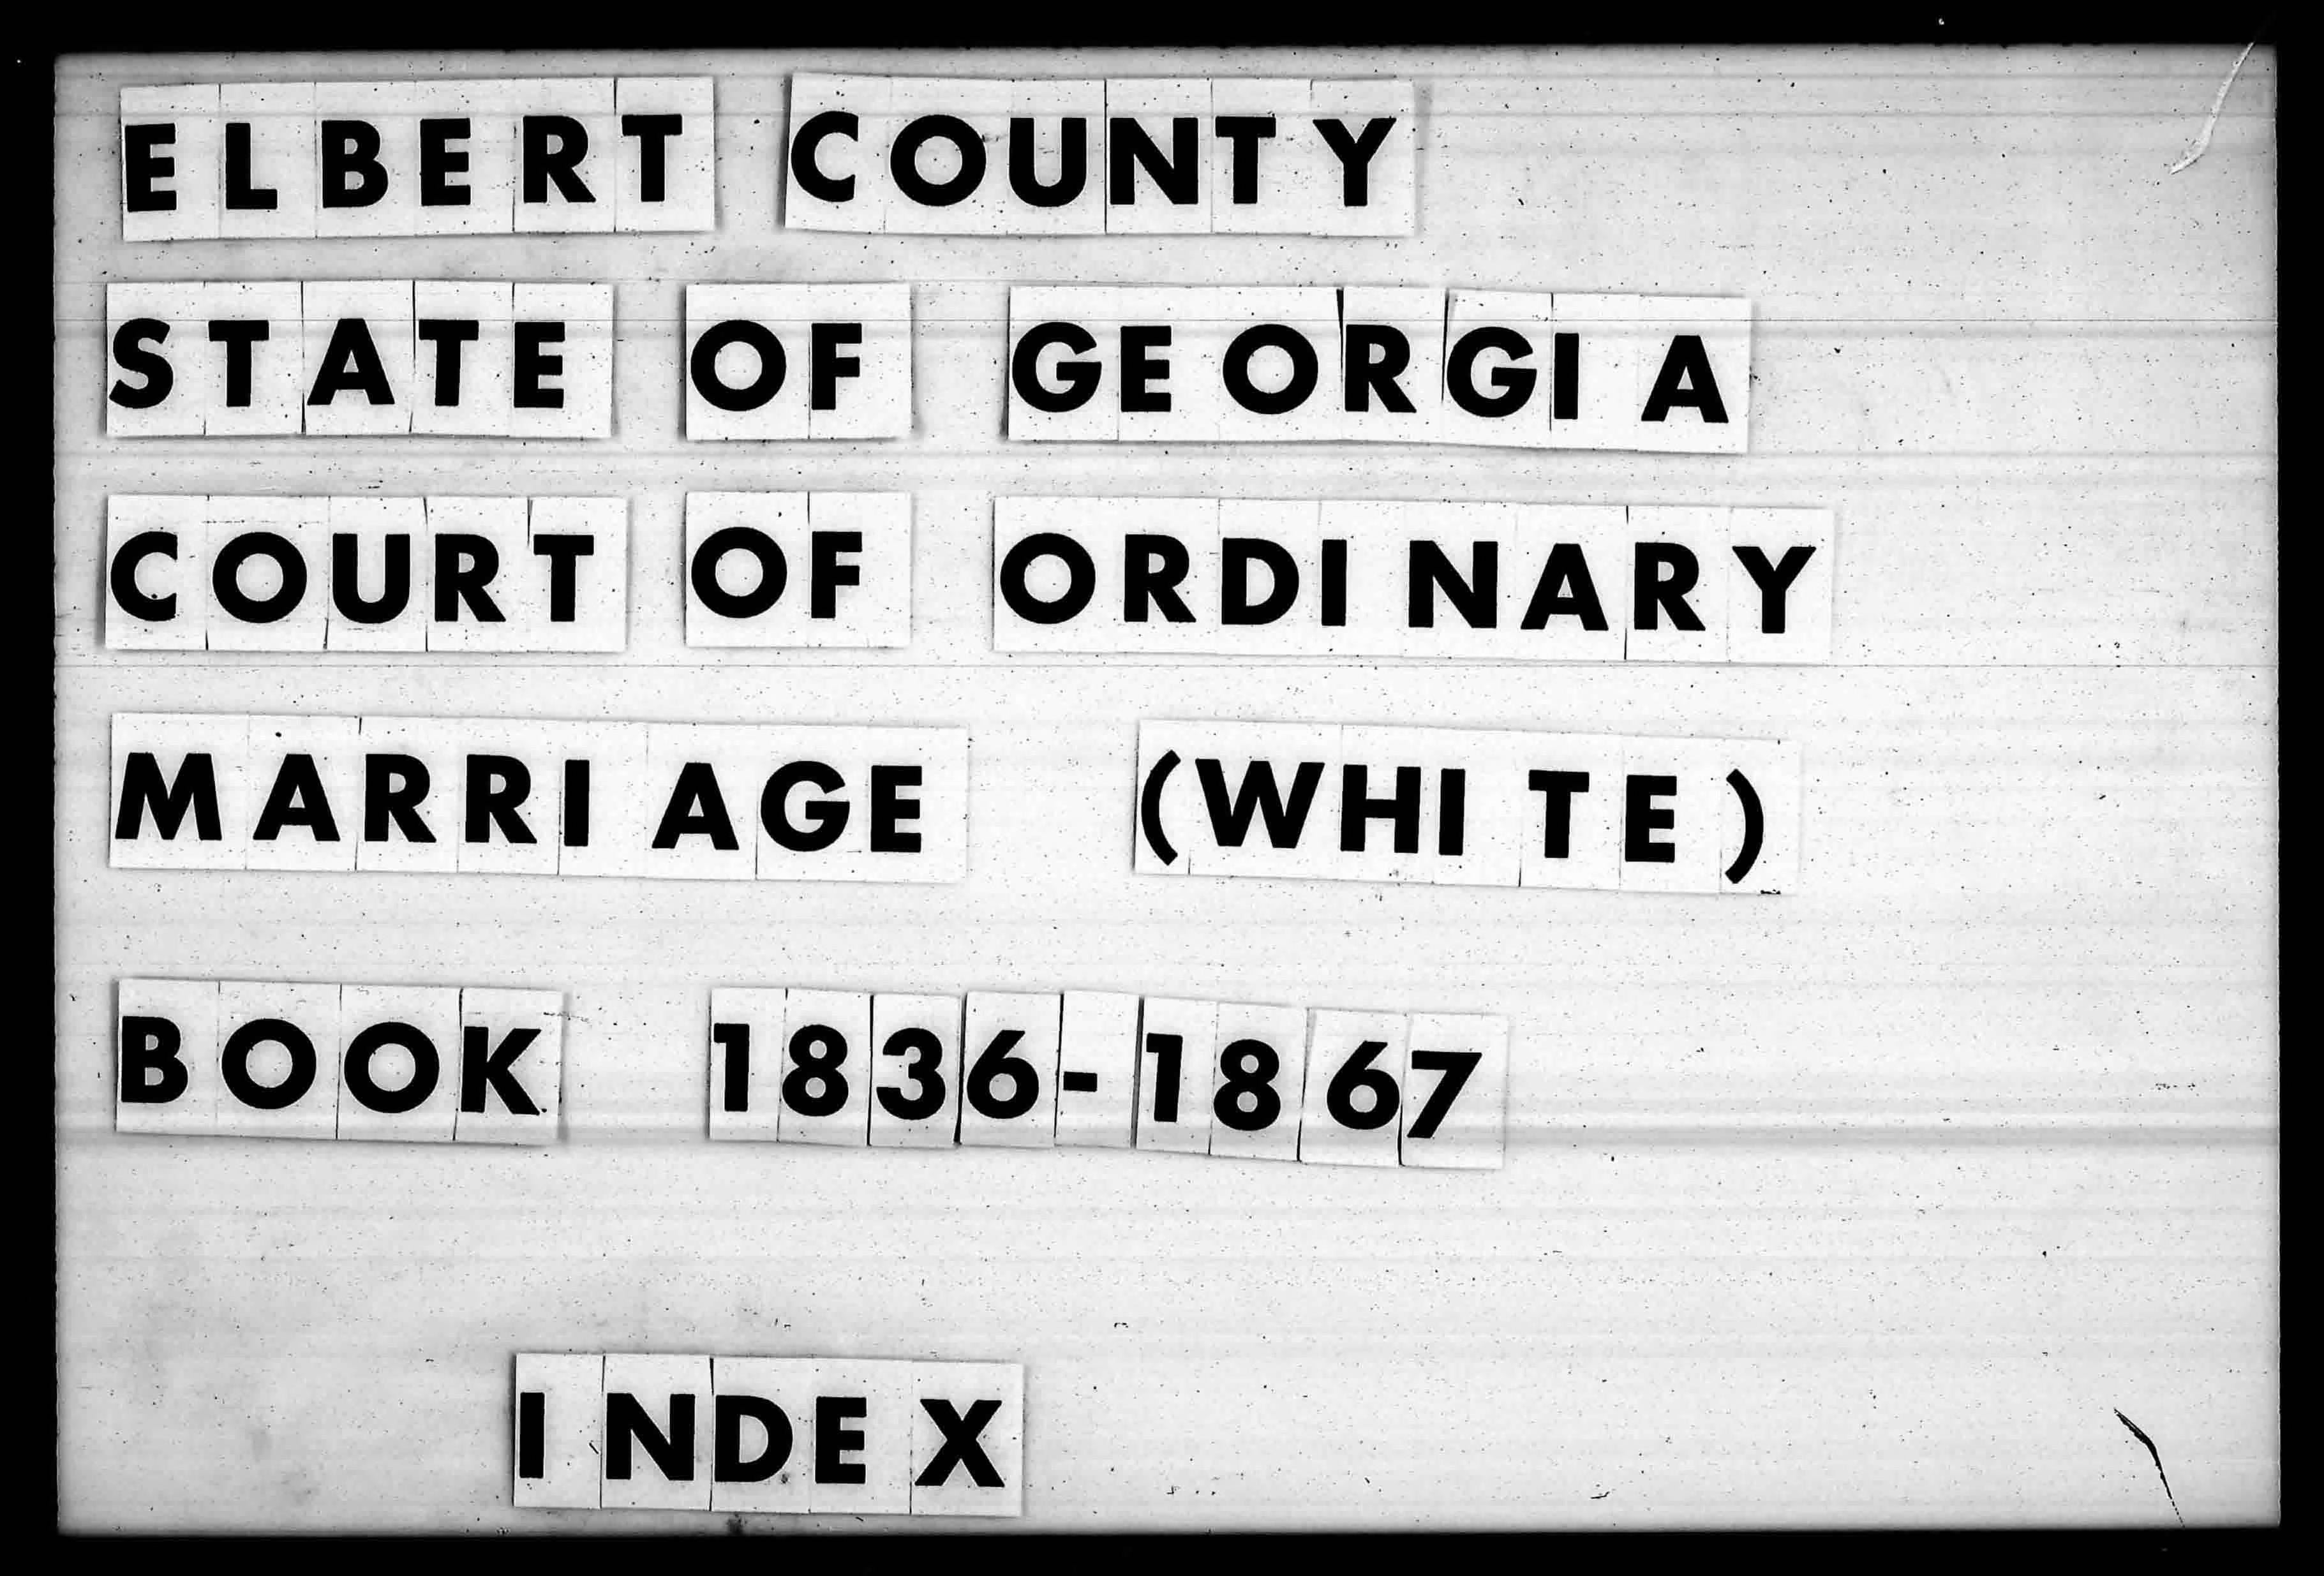 ELBERT COUNTY
STATE OF GEORGIA
COURT OF ORDINARY
MARRIAGE (WHITE)
BOOK 1836-1867
INDEX